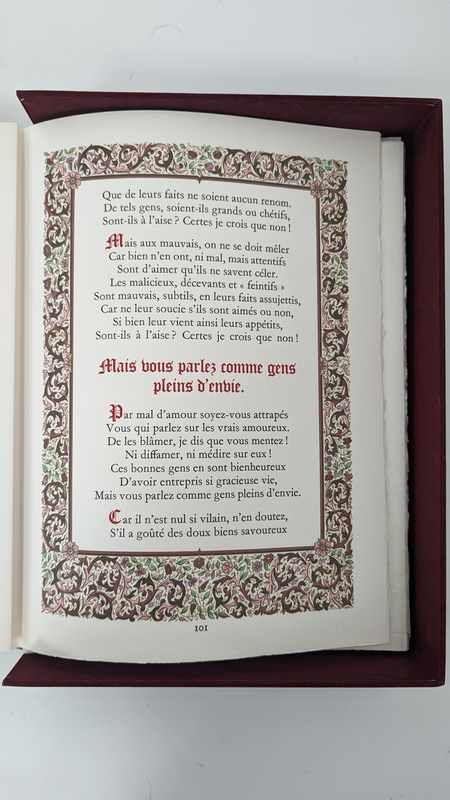 Que de leurs faits ne soient aucun renom.
De tels gens, soient-ils grands ou chétifs,
Sont-ils à l'aise ? Certes je crois que non !
Mais aux mauvais, on ne se doit mêler
Car bien n'en ont, ni mal, mais attentifs
Sont d'aimer qu'ils ne savent céler.
Les malicieux, décevants et « feintifs »
Sont mauvais, subtils, en leurs faits assujettis,
Car ne leur soucie s'ils sont aimés ou non,
Si bien leur vient ainsi leurs appétits,
Sont-ils à l'aise ? Certes je crois que non !
Mais vous parlez comme gens
pleins d'envie.
Par mal d'amour soyez-vous attrapés
Vous qui parlez sur les vrais amoureux.
De les blâmer, je dis que vous mentez !
Ni diffamer, ni médire sur eux !
Ces bonnes gens en sont bienheureux
D'avoir entrepris si gracieuse vie,
Mais vous parlez comme gens pleins d'envie.
Car il n'est nul si vilain, n'en doutez,
S'il a goûté des doux biens savoureux
101